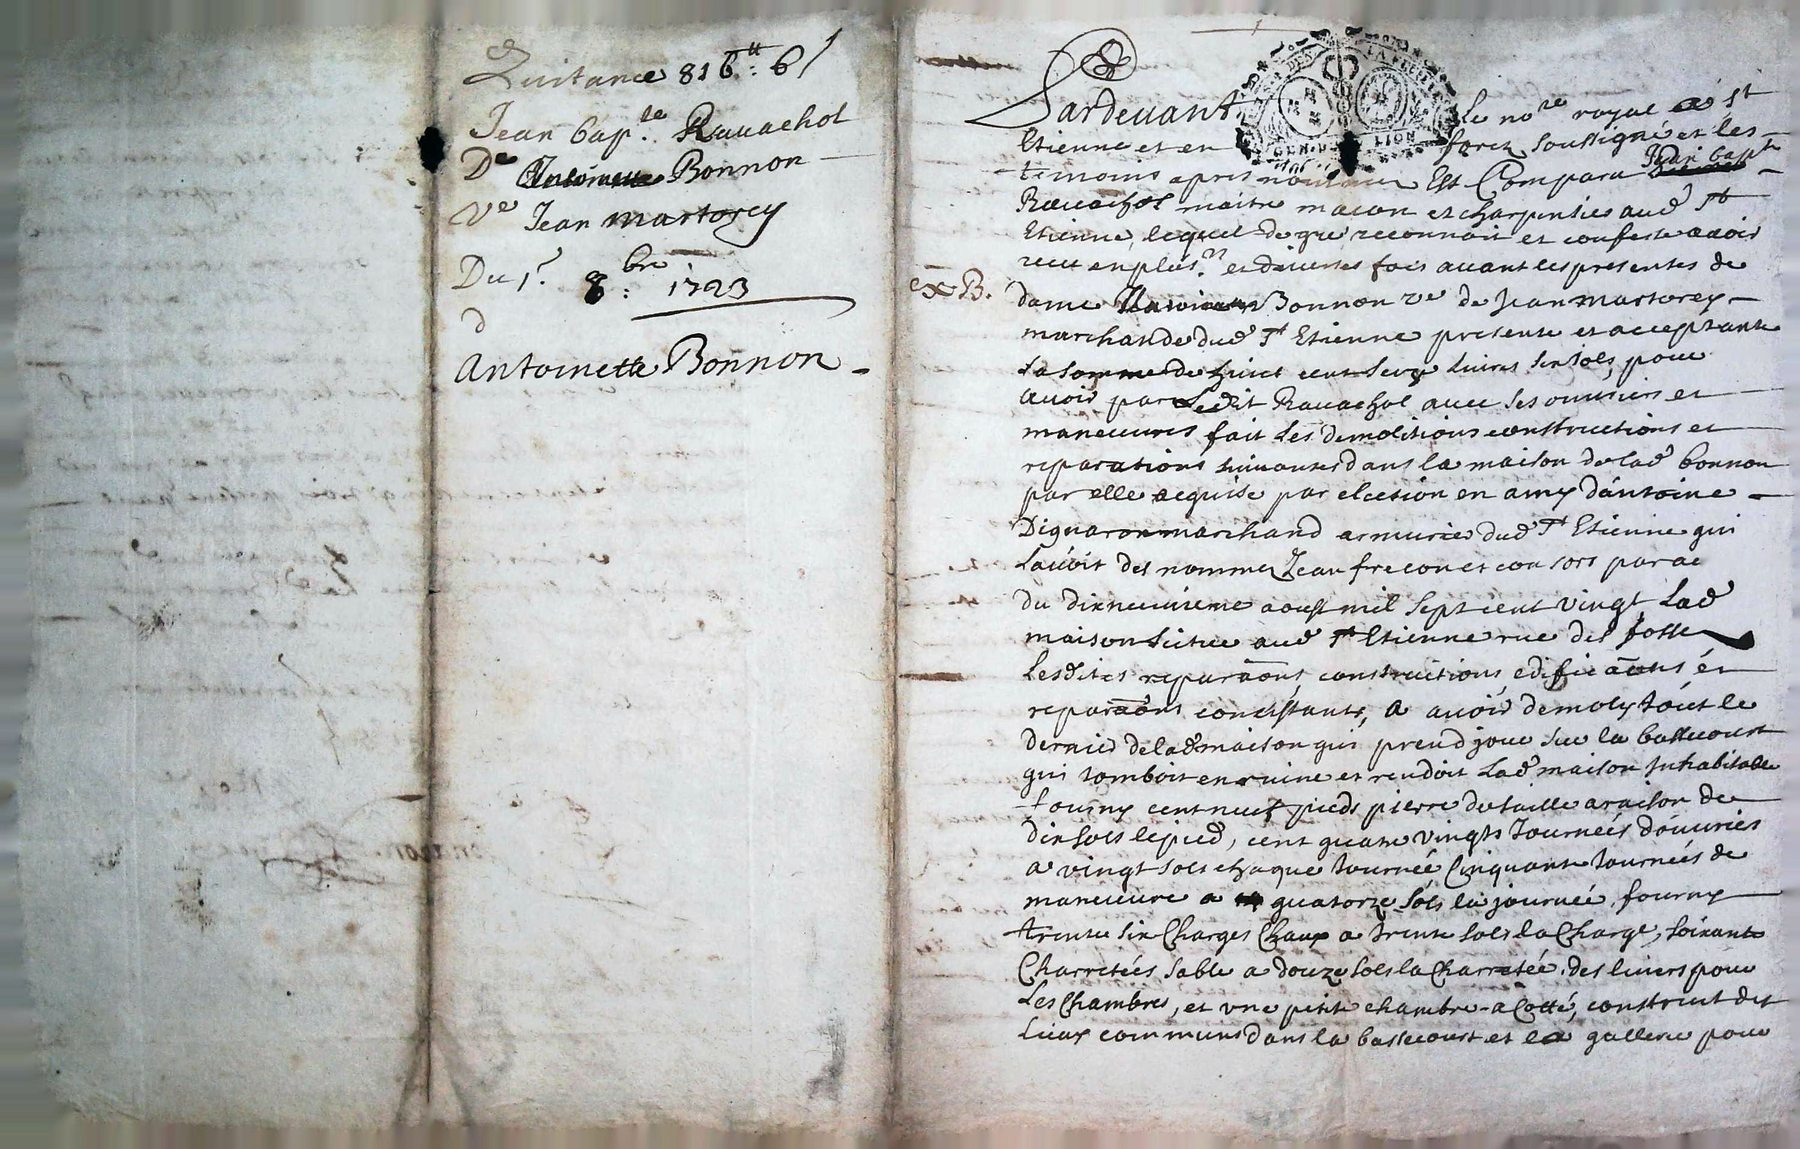 Quitance 816ₗₜ: 6ˢ
Jean bap.te Rauachol
De Antoinette Bonnon
Ve Jean martorey
Du 1r. 8: bre 1723
D
Antoinette Bonnon
Pardeuant Le nore royal a St
Etienne et en forez soussigné et les
temoins apres nommez Est Comparu Jean bapt
Rauachol maitre macon et charpentier aud St
Etienne, lequel de gre reconnoit et confesse auoir
receu en plusrs et diuerses fois auant les presentes de
ex B.
dame Bonnon ve de Jean martorey
marchande dud St Etienne presente et acceptante
La somme de huict cent seize liures six sols, pour
auoir par Ledit Rauachol auec ses ouuriers et
maneuures fait les demolitions constructions et
reparations suiuantes dans la maison de lad bonnon
par elle acquise par election en amy d'antoine
Dignaron marchand armurier dud St Etienne qui
Lauoit des nommez Jean frecon et consors par ac
du dixneuuieme aoust mil sept cent vingt Lad
maison scitue aud St Etienne rue des fosse
Lesdites reparaons constructions edificaons et
reparaons concistants, a auoir demoly tout le
dernier de lad maison qui prend jour sur la bassecourt
qui tomboit en ruine et rendoit Lad maison Inhabitable
fourny cent neuf pieds pierre de taille a raison de
dix sols le pied, cent quatre vingts Journees d'ouurier
a vingt sols chaque Journée Cinquante Journées de
maneuure a quatorze sols la journée, fourny
trente six Charges Chaux a trente sols la Charge, soixante
Charretées sable a douze sols la Charretée, des liuers pour
Les Chambres, et vne petite chambre a Cotté, construit des
Lieux communs dans la bassecourt et la gallerie pour